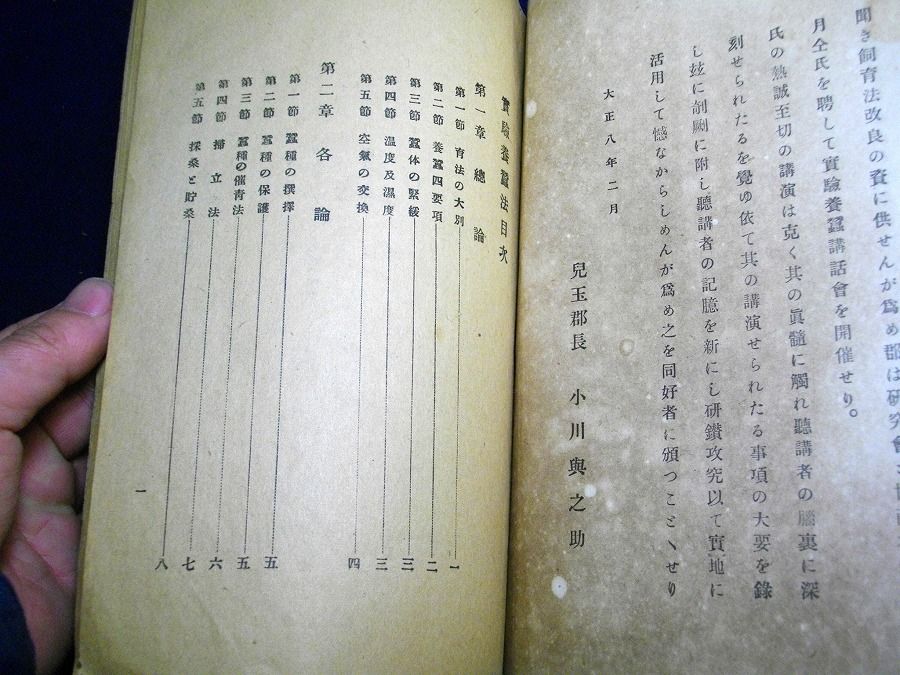 聞き飼育法改良の資に供せんが爲め郡は研究會
月仝氏を聘して實驗養蠶講話會を開催せり。
氏の熱誠至切の講演は克く其の眞髓に觸れ聽講者の腦裏に深
刻せられたるを覺ゆ依て其の講演せられたる事項の大要を錄
し玆に剞劂に附し聽講者の記臆を新にし研鑽攻究以て實地に
活用して憾なからしめんが爲め之を同好者に頒つことゝせり
大正八年二月
兒玉郡長 小川與之助
實驗養蠶法目次
第一章 總論
第一節 育法の大別 一
第二節 養蠶四要項 二
第三節 蠶体の緊緩 三
第四節 溫度及濕度 三
第五節 空氣の交換 四
第二章 各論
第一節 蠶種の撰擇 五
第二節 蠶種の保護 五
第三節 蠶種の催靑法 六
第四節 掃立法 七
第五節 採桑と貯桑 八
一